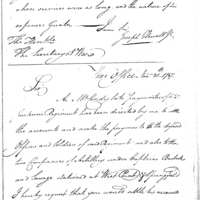 whose services were so long, and the nature of his
expenses Greater — I am Sir
Joseph Howell Jr.
The Honble
The Secretary at War
War Office, Nov. 20th 1787.
Sir,
As Mr. late Paymaster of
Regiment has been directed by me to settle
the accounts and make the payments to the
Officers and Soldiers of said Regiment and also to the
two Companies of Artillery under Captains
and Savage stationed at West Point & Springfield
I hereby request that you would settle his accounts